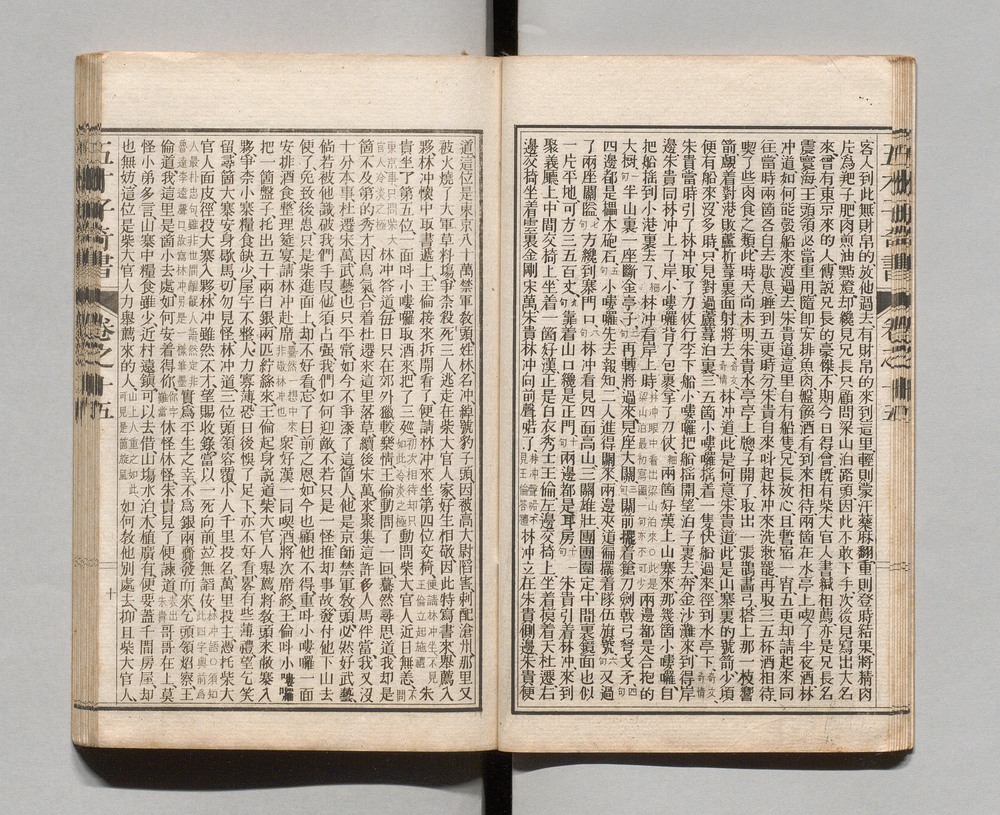 客人到此無財帛的放他過去有財帛的來到這里輕則蒙汗藥麻翻重則登時結果將精肉
片為羓子肥肉煎油點燈却纔見兄長只顧問梁山泊路頭因此不敢下手次後見寫出大名
來曾有東京來的人傳說兄長的豪傑不期今日得會旣有柴大官人書緘相薦亦是兄長名
震寰海王頭領必當重用隨卽安排魚肉盤饌酒看到來相待兩箇在水亭上喫了半夜酒林
冲道如何能彀船來渡過去朱貴道這里自有船隻兄長放心且暫宿一宵五更却請起來同
往當時兩箇各自去歇息睡到五更時分朱貴自來叫起林冲來洗漱罷再取三五杯酒相待
喫了些肉食之類此時天尚未明朱貴水亭亭上牕子開了取出一張鵲畫弓搭上那一枝響
箭覷着對港敗蘆折葦裏面射將去奇文奇情林冲道此是何意朱貴道此是山寨裏的號箭少頃
便有船來沒多時只見對過蘆葦泊裏三五箇小嘍囉搖着一隻快船過來徑到水亭下奇文奇情
朱貴當時引了林冲取了刀仗行李下船小嘍囉把船搖開望泊子裏去奔金沙灘來到得岸
邊朱貴同林冲上了岸小嘍囉背了包裹拿了刀仗細兩箇好漢上山寨來那幾箇小嘍囉自
把船搖到小港裏去了細林冲看岸上時林冲眼中看出梁山泊來○此是梁山泊最初寫圖一句亦不可少兩邊都是合抱的
大樹一句半山裏一座斷金亭子二句再轉將過來見座大關三句關前擺着鎗刀劍戟弓弩戈矛四句
四邊都是擂木砲石五句小嘍囉先去報知二人進得關來兩邊夾道徧擺着隊伍旗號六句又過
了兩座關隘七句方纔到寨門口八句林冲看見四面高山三關雄壯團團圍定中間裏鏡面也似
一片平地可方三五百丈九句靠着山口纔是正門十句兩邊都是耳房十一句朱貴引着林冲來到
聚義廳上中間交椅上坐着一箇好漢正是白衣秀士王倫左邊交椅上坐着摸着天杜遷右
邊交椅坐着雲裏金剛宋萬朱貴林冲向前聲喏了林冲聲喏不見王倫答禮林冲立在朱貴側邊朱貴便
五才子奇書
卷之十五
道這位是東京八十萬禁軍敎頭姓林名冲綽號豹子頭因被高大尉陷害刺配滄州那里又
被火燒了大軍草料塲爭柰殺死三人逃走在柴大官人家好生相敬因此特寫書來舉薦入
夥林冲懷中取書遞上王倫接來拆開看了便請林冲來坐第四位交椅便請林冲坐不見王倫立起施禮朱
貴坐了第五位一面叫小嘍囉取酒來把了三廵初次相待却只如此冷淡之極動問柴大官人近日無恙不問東京事只問柴大官人冷淡之極
林冲答道每日只在郊外獵較樂情王倫動問了一回驀然尋思道我却是
箇不及第的秀才因鳥氣合着杜遷來這里落草續後宋萬來聚集這許多人馬伴當我又沒
十分本事杜遷宋萬武藝也只平常如今不爭添了這箇人他是京師禁軍敎頭必然好武藝
倘若被他識破我們手叚他須占强我們如何迎敵不若只是一怪推却事故發付他下山去
便了免致後患只是柴進面上却不好看忘了日前之恩如今也顧他不得重叫小嘍囉一面
安排酒食整理筵宴請林冲赴席驀然一想中來非敬林冲也衆好漢一同喫酒將次席終王倫叫小嘍囉
把一箇盤子托出五十兩白銀兩匹紵絲來王倫起身說道柴大官人舉薦將敎頭來敝寨入
夥爭柰小寨糧食缺少屋宇不整人力寡薄恐日後悞了足下亦不好看畧有些薄禮望乞笑
留尋箇大寨安身歇馬切勿見怪林冲道三位頭領容覆小人千里投名萬里投主憑托柴大
官人面皮徑投大寨入夥林冲雖然不才望賜收錄當以一死向前並無諂佞林冲語○須知此四字與前
實爲平生之幸不爲銀兩齎發而來乞頭領炤察王
倫道我這里是箇小去處如何安着得你休怪休怪朱貴見了便諫道哥哥在上莫
怪小弟多言山寨中糧食雖少近村遠鎭可以去借山塲水泊木植廣有便要蓋千間房屋却
也無妨這位是柴大官人力舉薦來的人如何敎他別處去抑且柴大官人
十